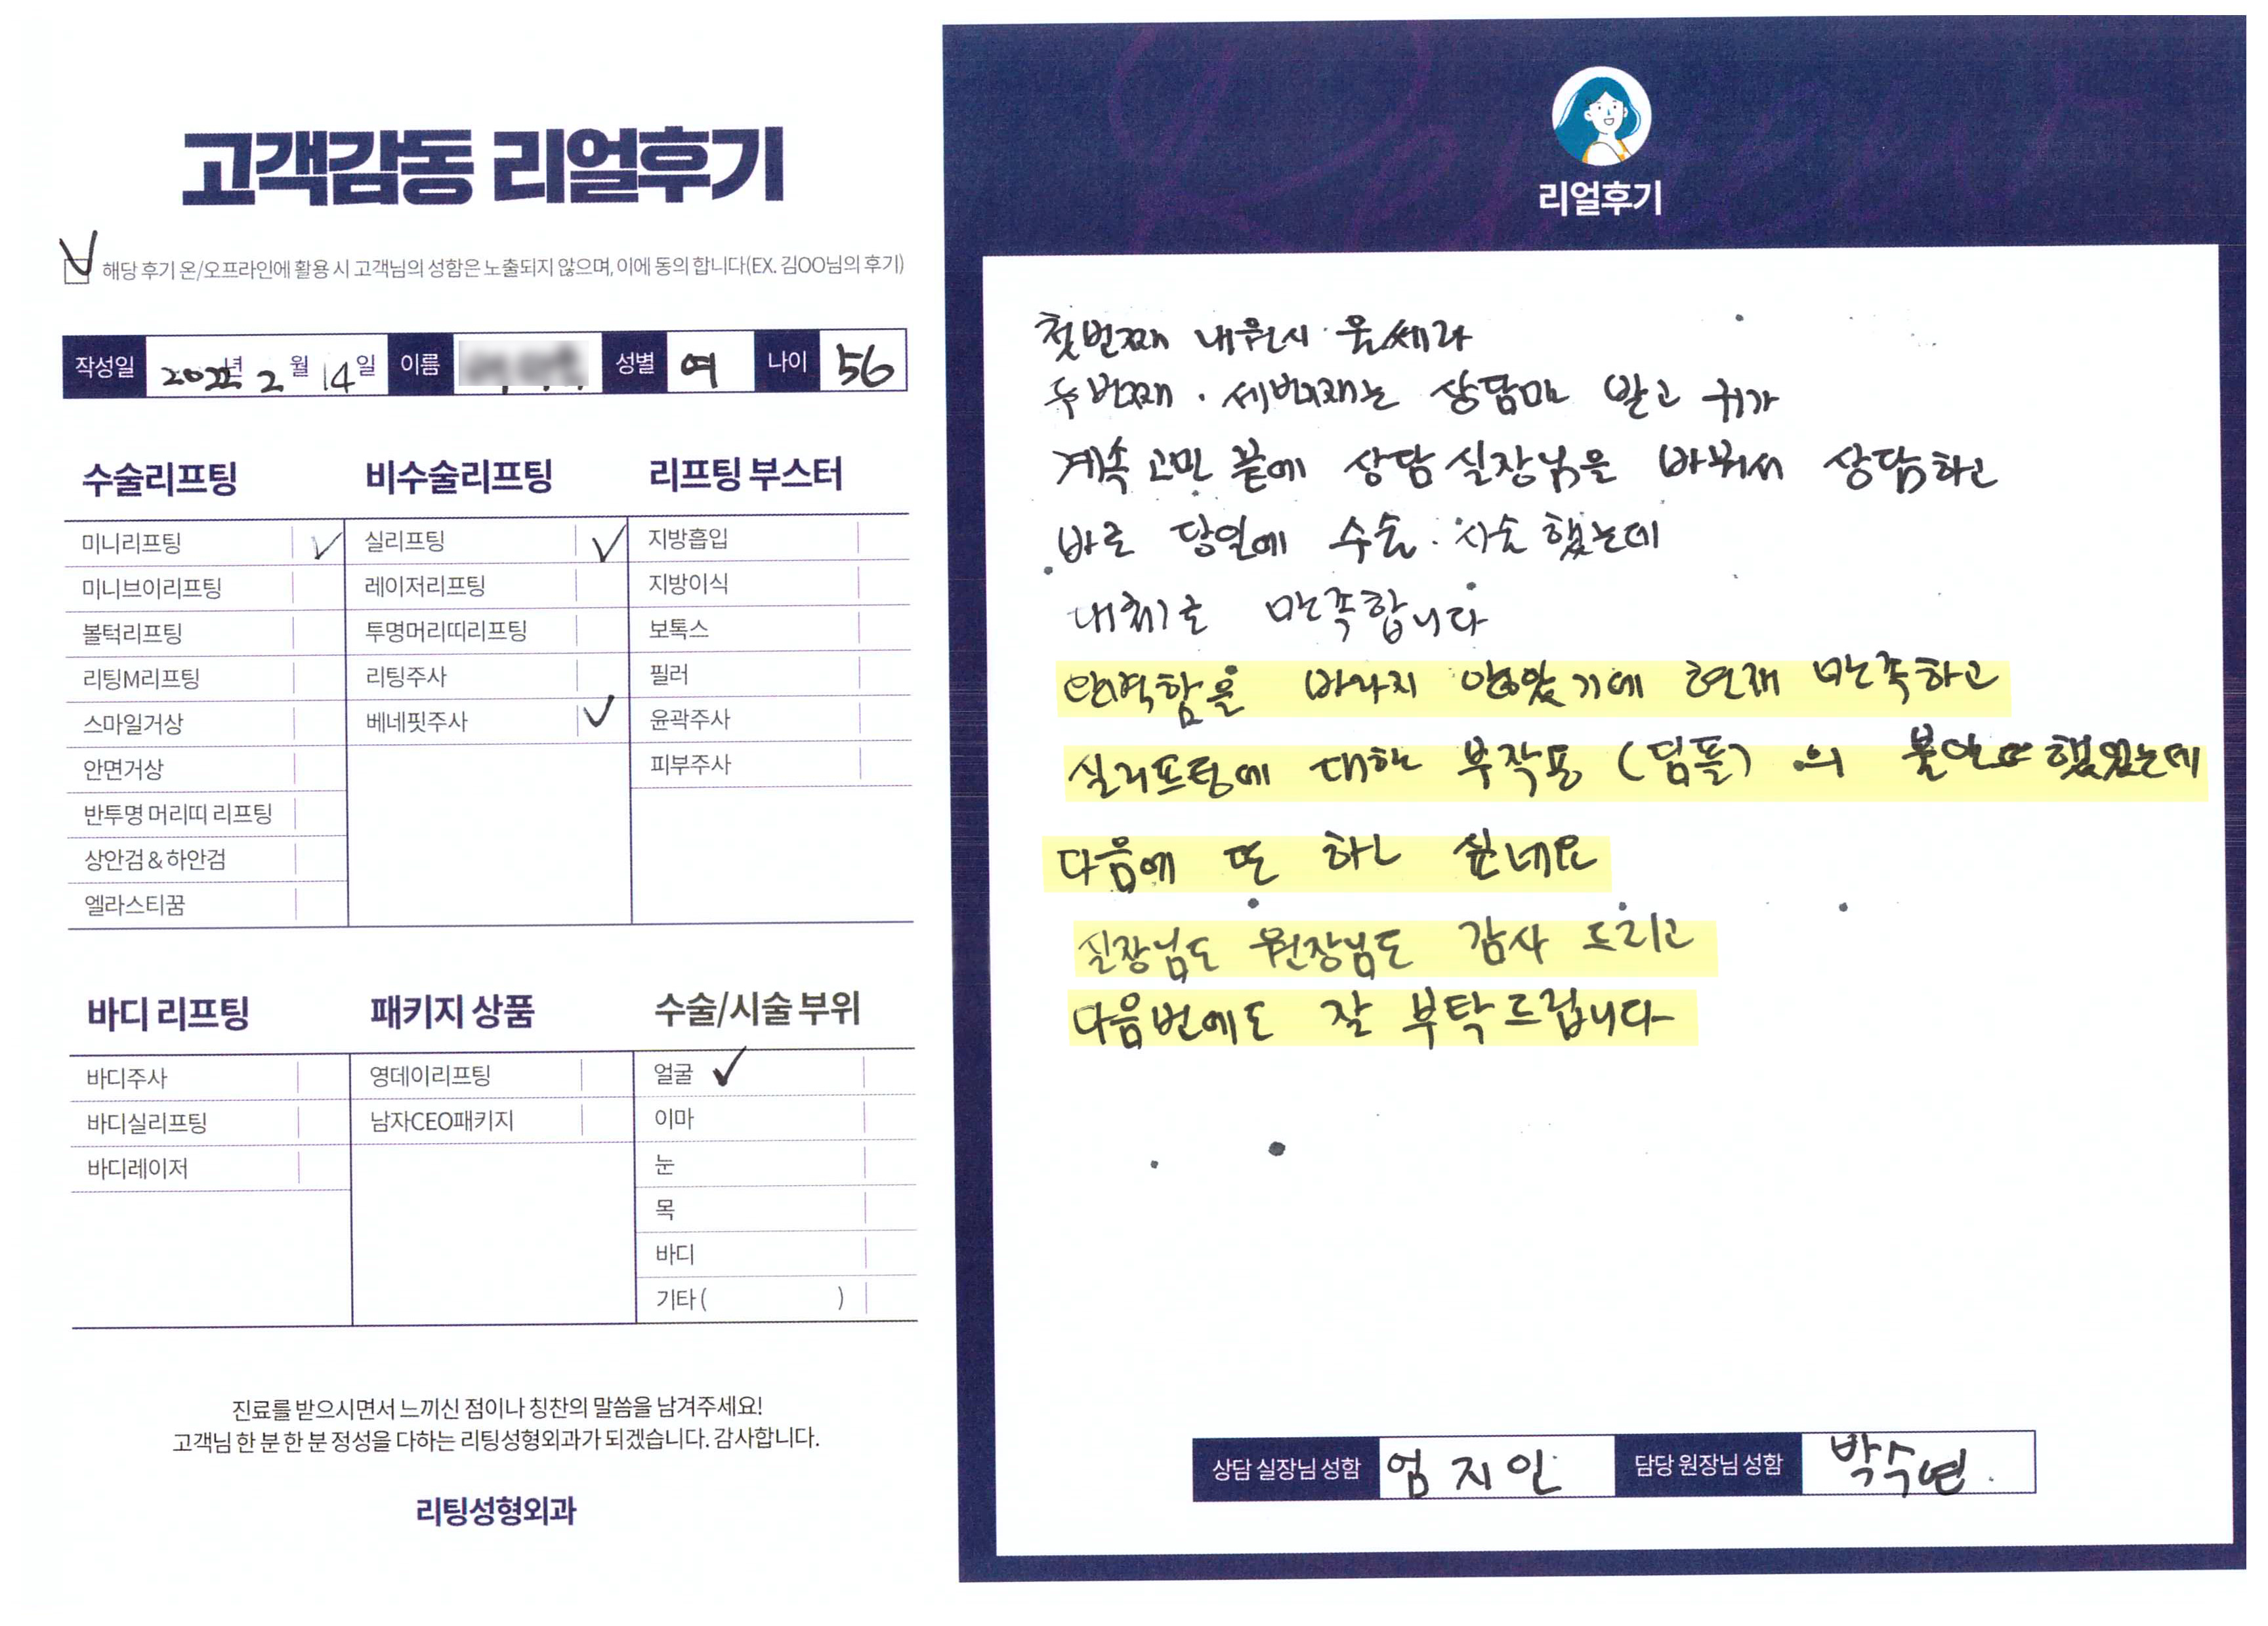 고객감동 리얼후기
해당 후기 온/오프라인에 활용 시 고객님의 성함은 노출되지 않으며, 이에 동의 합니다(EX. 김OO님의 후기)
작성일 2022년 2월 14일 이름 성별 여 나이 56
수술리프팅 비수술리프팅 리프팅 부스터
미니리프팅 실리프팅 지방흡입
미니브이리프팅 레이저리프팅 지방이식
볼턱리프팅 투명머리띠리프팅 보톡스
리팅M리프팅 리팅주사 필러
스마일거상 베네핏주사 윤곽주사
안면거상 피부주사
반투명 머리띠 리프팅
상안검 & 하안검
엘라스티꿈
바디 리프팅 패키지 상품 수술/시술 부위
바디주사 영데이리프팅 얼굴
바디실리프팅 남자CEO패키지 이마
바디레이저 눈
목
바디
기타 ( )
진료를 받으시면서 느끼신 점이나 칭찬의 말씀을 남겨주세요!
고객님 한 분 한 분 정성을 다하는 리팅성형외과가 되겠습니다. 감사합니다.
리팅성형외과
리얼후기
첫번째 내원시 울쎄라
두번째 . 세번째는 상담만 받고 귀가
계속 고민 끝에 상담실장님을 바꿔서 상담하고
바로 당일에 수술. 시술 했는데
대체로 만족합니다
완벽함을 바라지 않았기에 현재 만족하고
실리프팅에 대한 부작용 (딤플) 의 했었는데
다음에 또 하고 싶네요
실장님도 원장님도 감사 드리고
다음번에도 잘 부탁드립니다
상담 실장님 성함 엄지인 담당 원장님 성함 박수연.